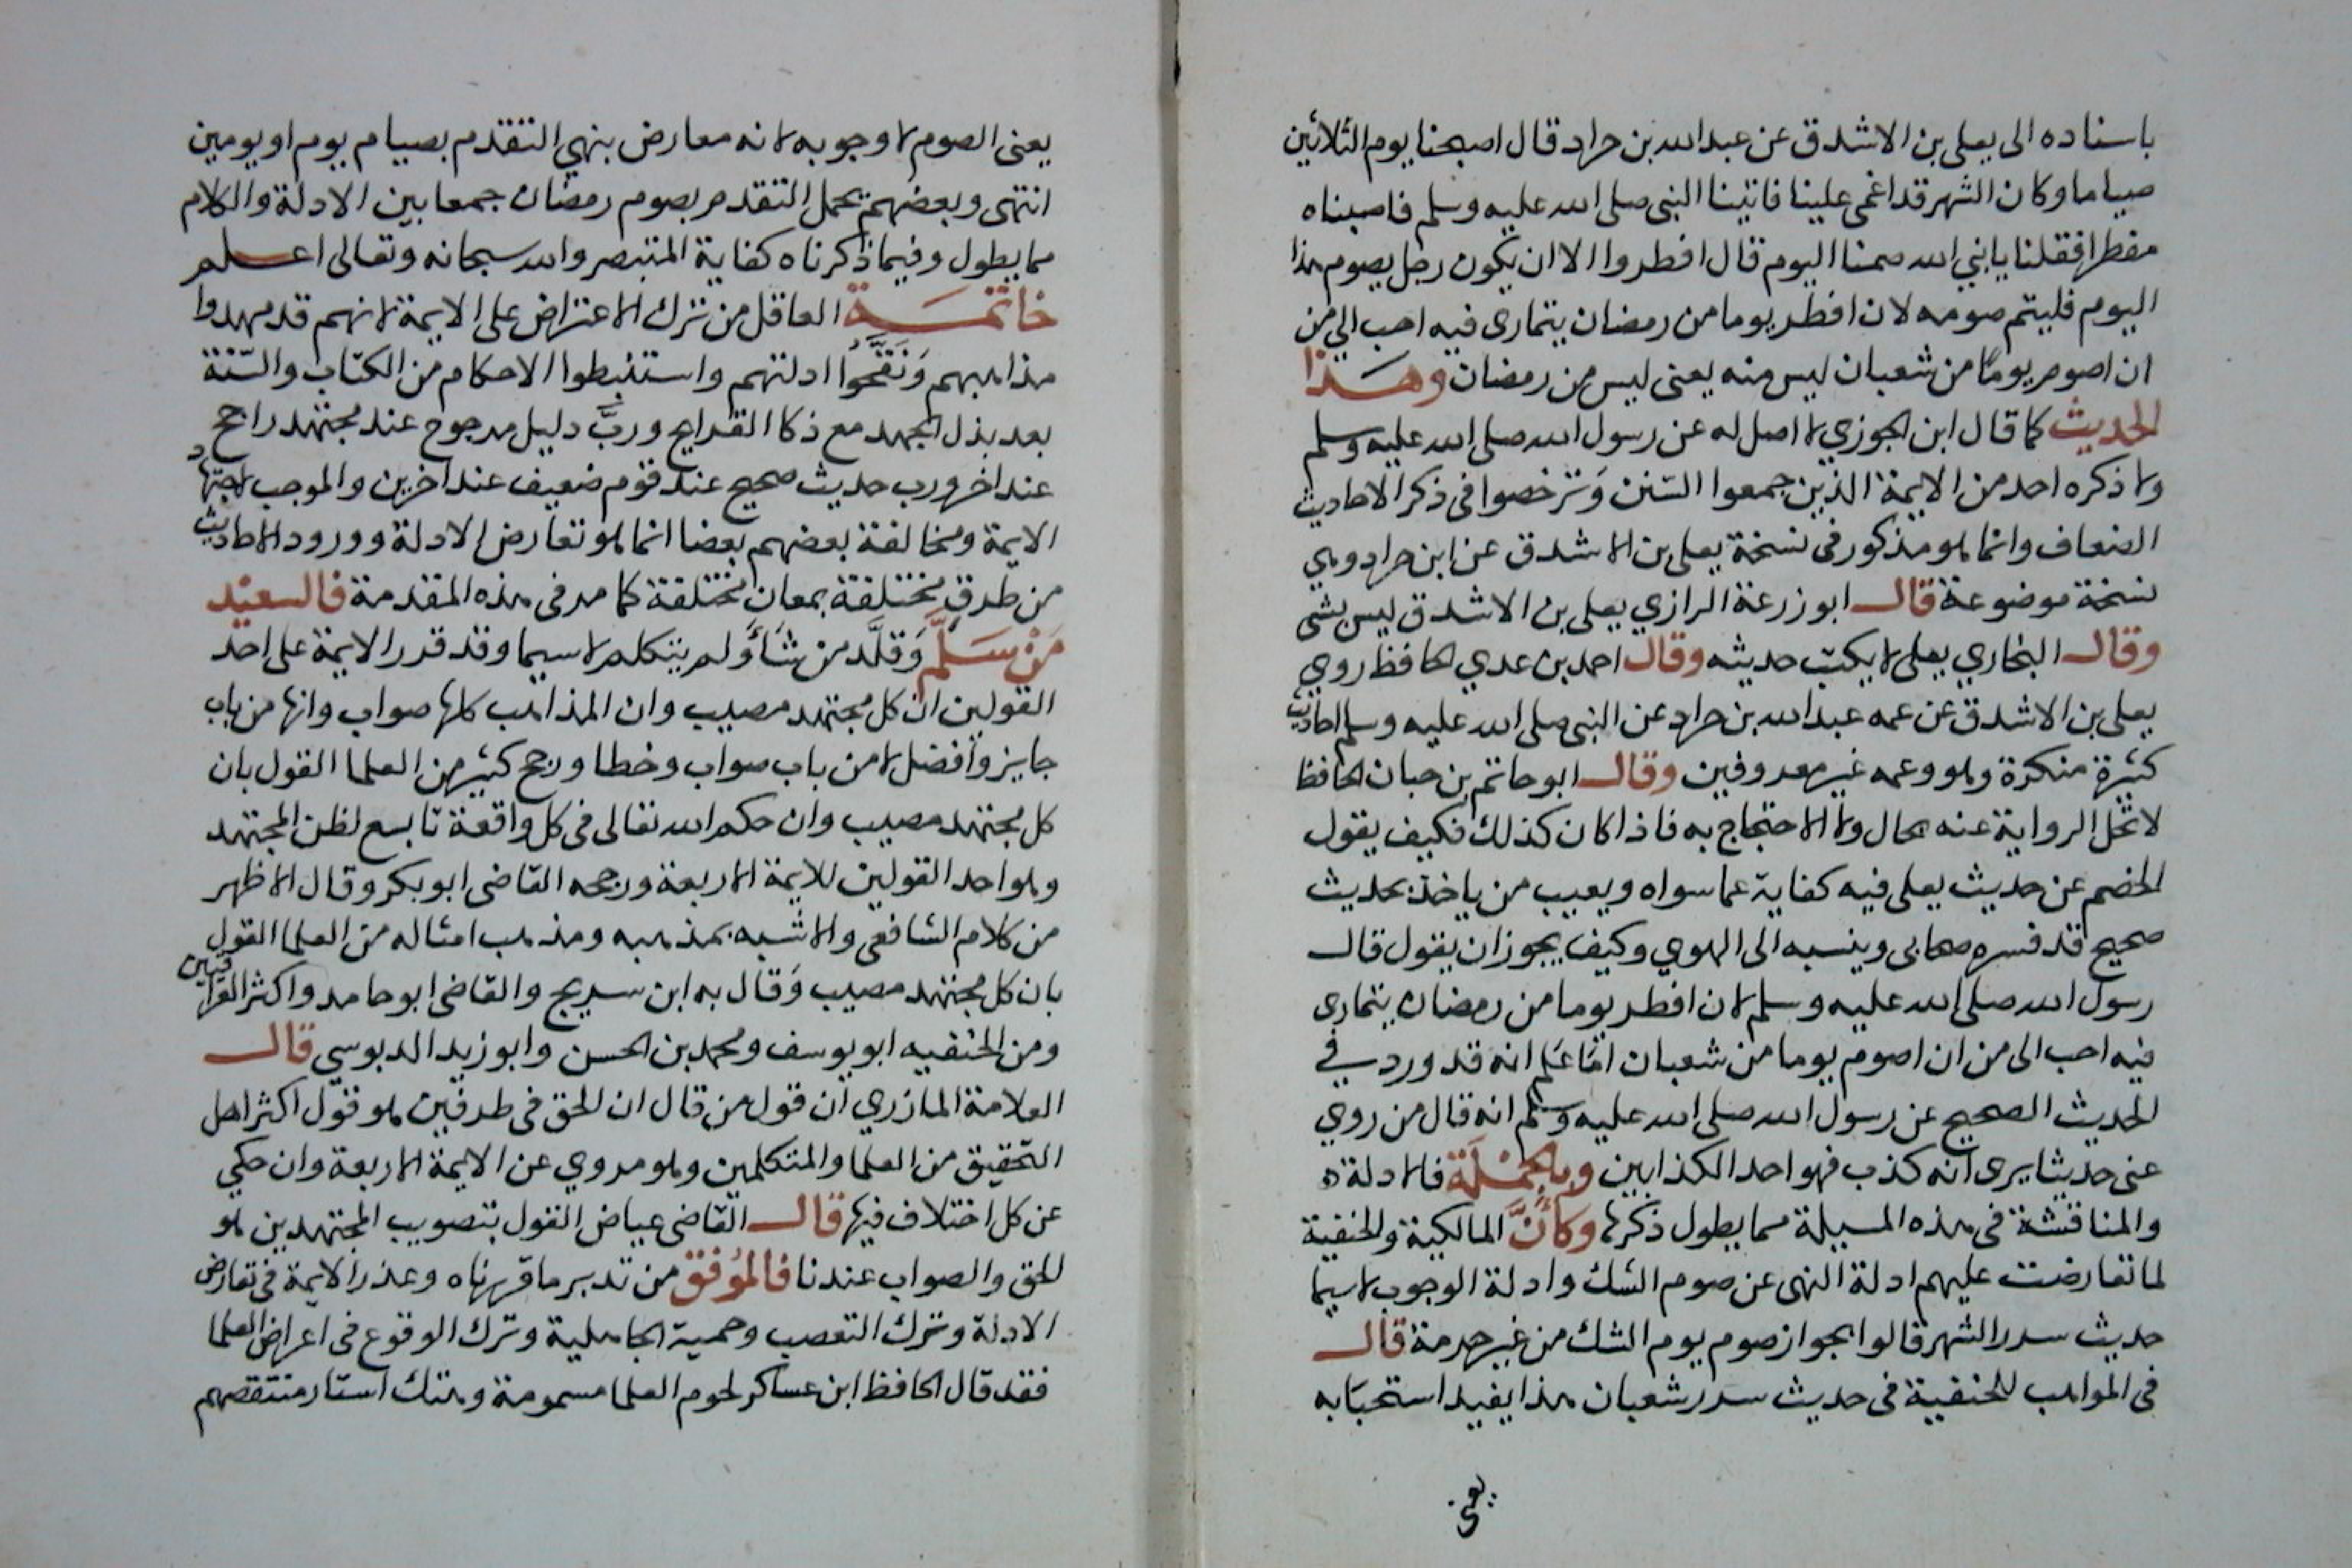 باسناده الى يعلى بن الاشدق عن عبد الله بن جراد قال اصبحنا يوم الثلاثين
صياما وكان الشهر قد اغمي علينا فاتينا النبي صلى الله عليه وسلم فاصبناه
مفطرا فقلنا يا نبي الله صمنا اليوم قال افطروا الا ان يكون رجل يصوم هذا
اليوم فليتم صومه لان افطر يوما من رمضان يتمارى فيه احب الي من
ان اصوم يوما من شعبان ليس منه يعنى ليس من رمضان وهذا
الحديث كما قال ابن الجوزي لا اصل له عن رسول الله صلى الله عليه وسلم
ولا ذكره احد من الايمة الذين جمعوا السنن وترخصوا فى ذكر الاحاديث
الضعاف وانما هو مذكور فى نسخة يعلى بن الاشدق عن ابن جراد وهي
نسخة موضوعة قال ابو زرعة الرازي يعلى بن الاشدق ليس بشى
وقال البخاري يعلى لا يكتب حديثه وقال احمد بن عدي الحافظ روي
يعلى بن الاشدق عن عمه عبد الله بن جراد عن النبى صلى الله عليه وسلم احاديث
كثيرة منكرة وهو وعمه غير معروفين وقال ابو حاتم بن حبان الحافظ
لا تحل الرواية عنه بحال ولا الاحتجاج به فاذا كان كذلك فكيف يقول
الخصم عن حديث يعلى فيه كفاية عما سواه ويعيب من ياخذ بحديث
صحيح قد فسره صحابى وينسبه الى الهوي وكيف يجوز ان يقول قال
رسول الله صلى الله عليه وسلم لان افطر يوما من رمضان يتمارى
فيه احب الى من ان اصوم يوما من شعبان اما علم انه قد ورد في
الحديث الصحيح عن رسول الله صلى الله عليه وسلم انه قال من روي
عنى حديثا يرى انه كذب فهو احد الكذابين وبالجملة فالادلة
والمناقشة فى هذه المسيلة مما يطول ذكرها وكأن المالكية والحنفية
لما تعارضت عليهم ادلة النهى عن صوم الشك وادلة الوجوب لاسيما
حديث سرر الشهر قالوا بجواز صوم يوم الشك من غير حرمة قال
فى المواهب للحنفية فى حديث سرر شعبان هذا يفيد استحبابه
يعنى
يعنى الصوم لا وجوبه لانه معارض بنهي التقدم بصيام يوم او يومين
انتهى وبعضهم يحمل التقدم بصوم رمضان جمعا بين الادلة والكلام
مما يطول وفيما ذكرناه كفاية المتبصر والله سبحانه وتعالى اعلم
خاتمة العاقل من ترك الاعتراض على الايمة لانهم قد مهدوا
مذاهبهم ونقحوا ادلتهم واستنبطوا الاحكام من الكتاب والسنة
بعد بذل الجهد مع ذكا القرايح ورب دليل مرجوح عند مجتهد راجح
عند اخر ورب حديث صحيح عند قوم ضعيف عند اخرين والموجب لاجتهاد
الايمة ومخالفة بعضهم بعضا انما هو تعارض الادلة وورود الاحاديث
من طرق مختلفة بمعان مختلفة كما مر فى هذه المقدمة فالسعيد
من سلم وقلد من شاء ولم يتكلم لاسيما وقد قرر الايمة على احد
القولين ان كل مجتهد مصيب وان المذاهب كلها صواب وانها من باب
جايز وافضل لا من باب صواب وخطا ورجح كثير من العلما القول بان
كل مجتهد مصيب وان حكم الله تعالى فى كل واقعة تابع لظن المجتهد
وهو احد القولين للايمة الاربعة ورجحه القاضى ابو بكر وقال الاظهر
من كلام الشافعى والاشبه بمذهبه ومذهب امثاله من العلما القول
بان كل مجتهد مصيب وقال به ابن سريج والقاضى ابو حامد واكثر العراقيين
ومن الحنفيه ابو يوسف ومحمد بن الحسن وابو زيد الدبوسي قال
العلامة المازري ان قول من قال ان الحق فى طرفين هو قول اكثر اهل
التحقيق من العلما والمتكلمين وهو مروي عن الايمة الاربعة وان حكي
عن كل اختلاف فيها قال القاضى عياض القول بتصويب المجتهدين هو
الحق والصواب عندنا فالموفق من تدبر ما قررناه وعذر الايمة فى تعارض
الادلة وترك التعصب وحمية الجاهلية وترك الوقوع فى اعراض العلما
فقد قال الحافظ ابن عساكر لحوم العلما مسمومة وهتك استار منتقصهم